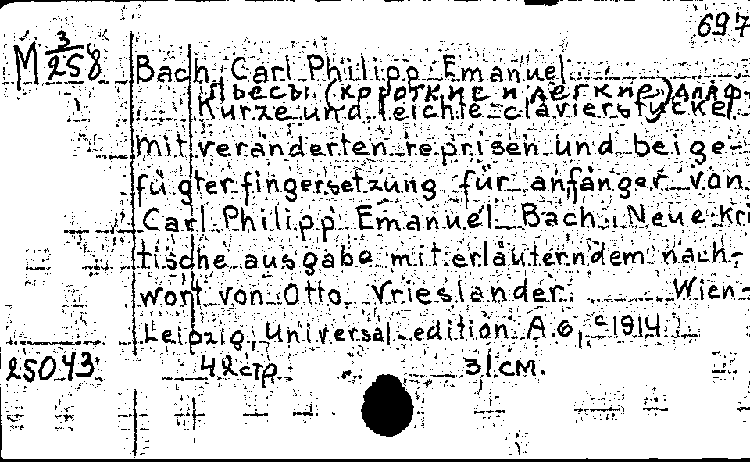 697
М 3/258
Bach, Carl Philipp Emanuel
Пьесы (короткие и легкие) для ф-
Kurze und leichte clavierstücke
mit veränderten reprisen und beige-
fügter fingersetzung für anfänger von
Carl Philipp Emanuel Bach. Neue kri
tische ausgabe mit erläuterndem nach-
wort von Otto Vrieslander. Wien-
Leipzig, Universal-edition A.G, c1914.
25043 42стр. 31см.